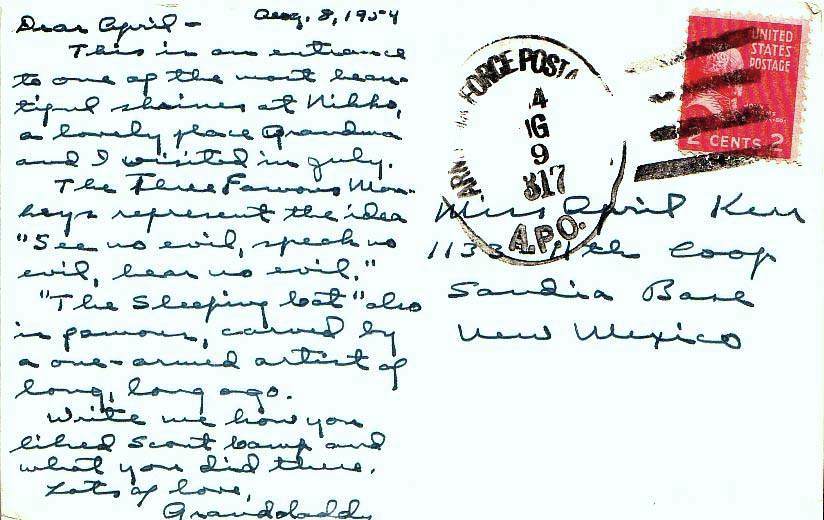 Aug. 8, 1954
Dear April -
This is an entrance
to one of the most beau-
tiful shrines at Nikko,
a lovely place Grandma
and I visited in July.
The Three Famous Mon-
keys represent the idea
"See no evil, speak no
evil, hear no evil."
"The Sleeping Cat" also
is famous, carved by
a one-armed artist of
long, long ago.
Write me how you
liked Scout Camp and
what you did there.
Lots of love,
Granddaddy
FORCE POSTA
4
9
817
A.P.O.
UNITED
STATES
POSTAGE
2 CENTS 2
Miss April Kerr
1133 11th Coop
Sandia Base
New Mexico